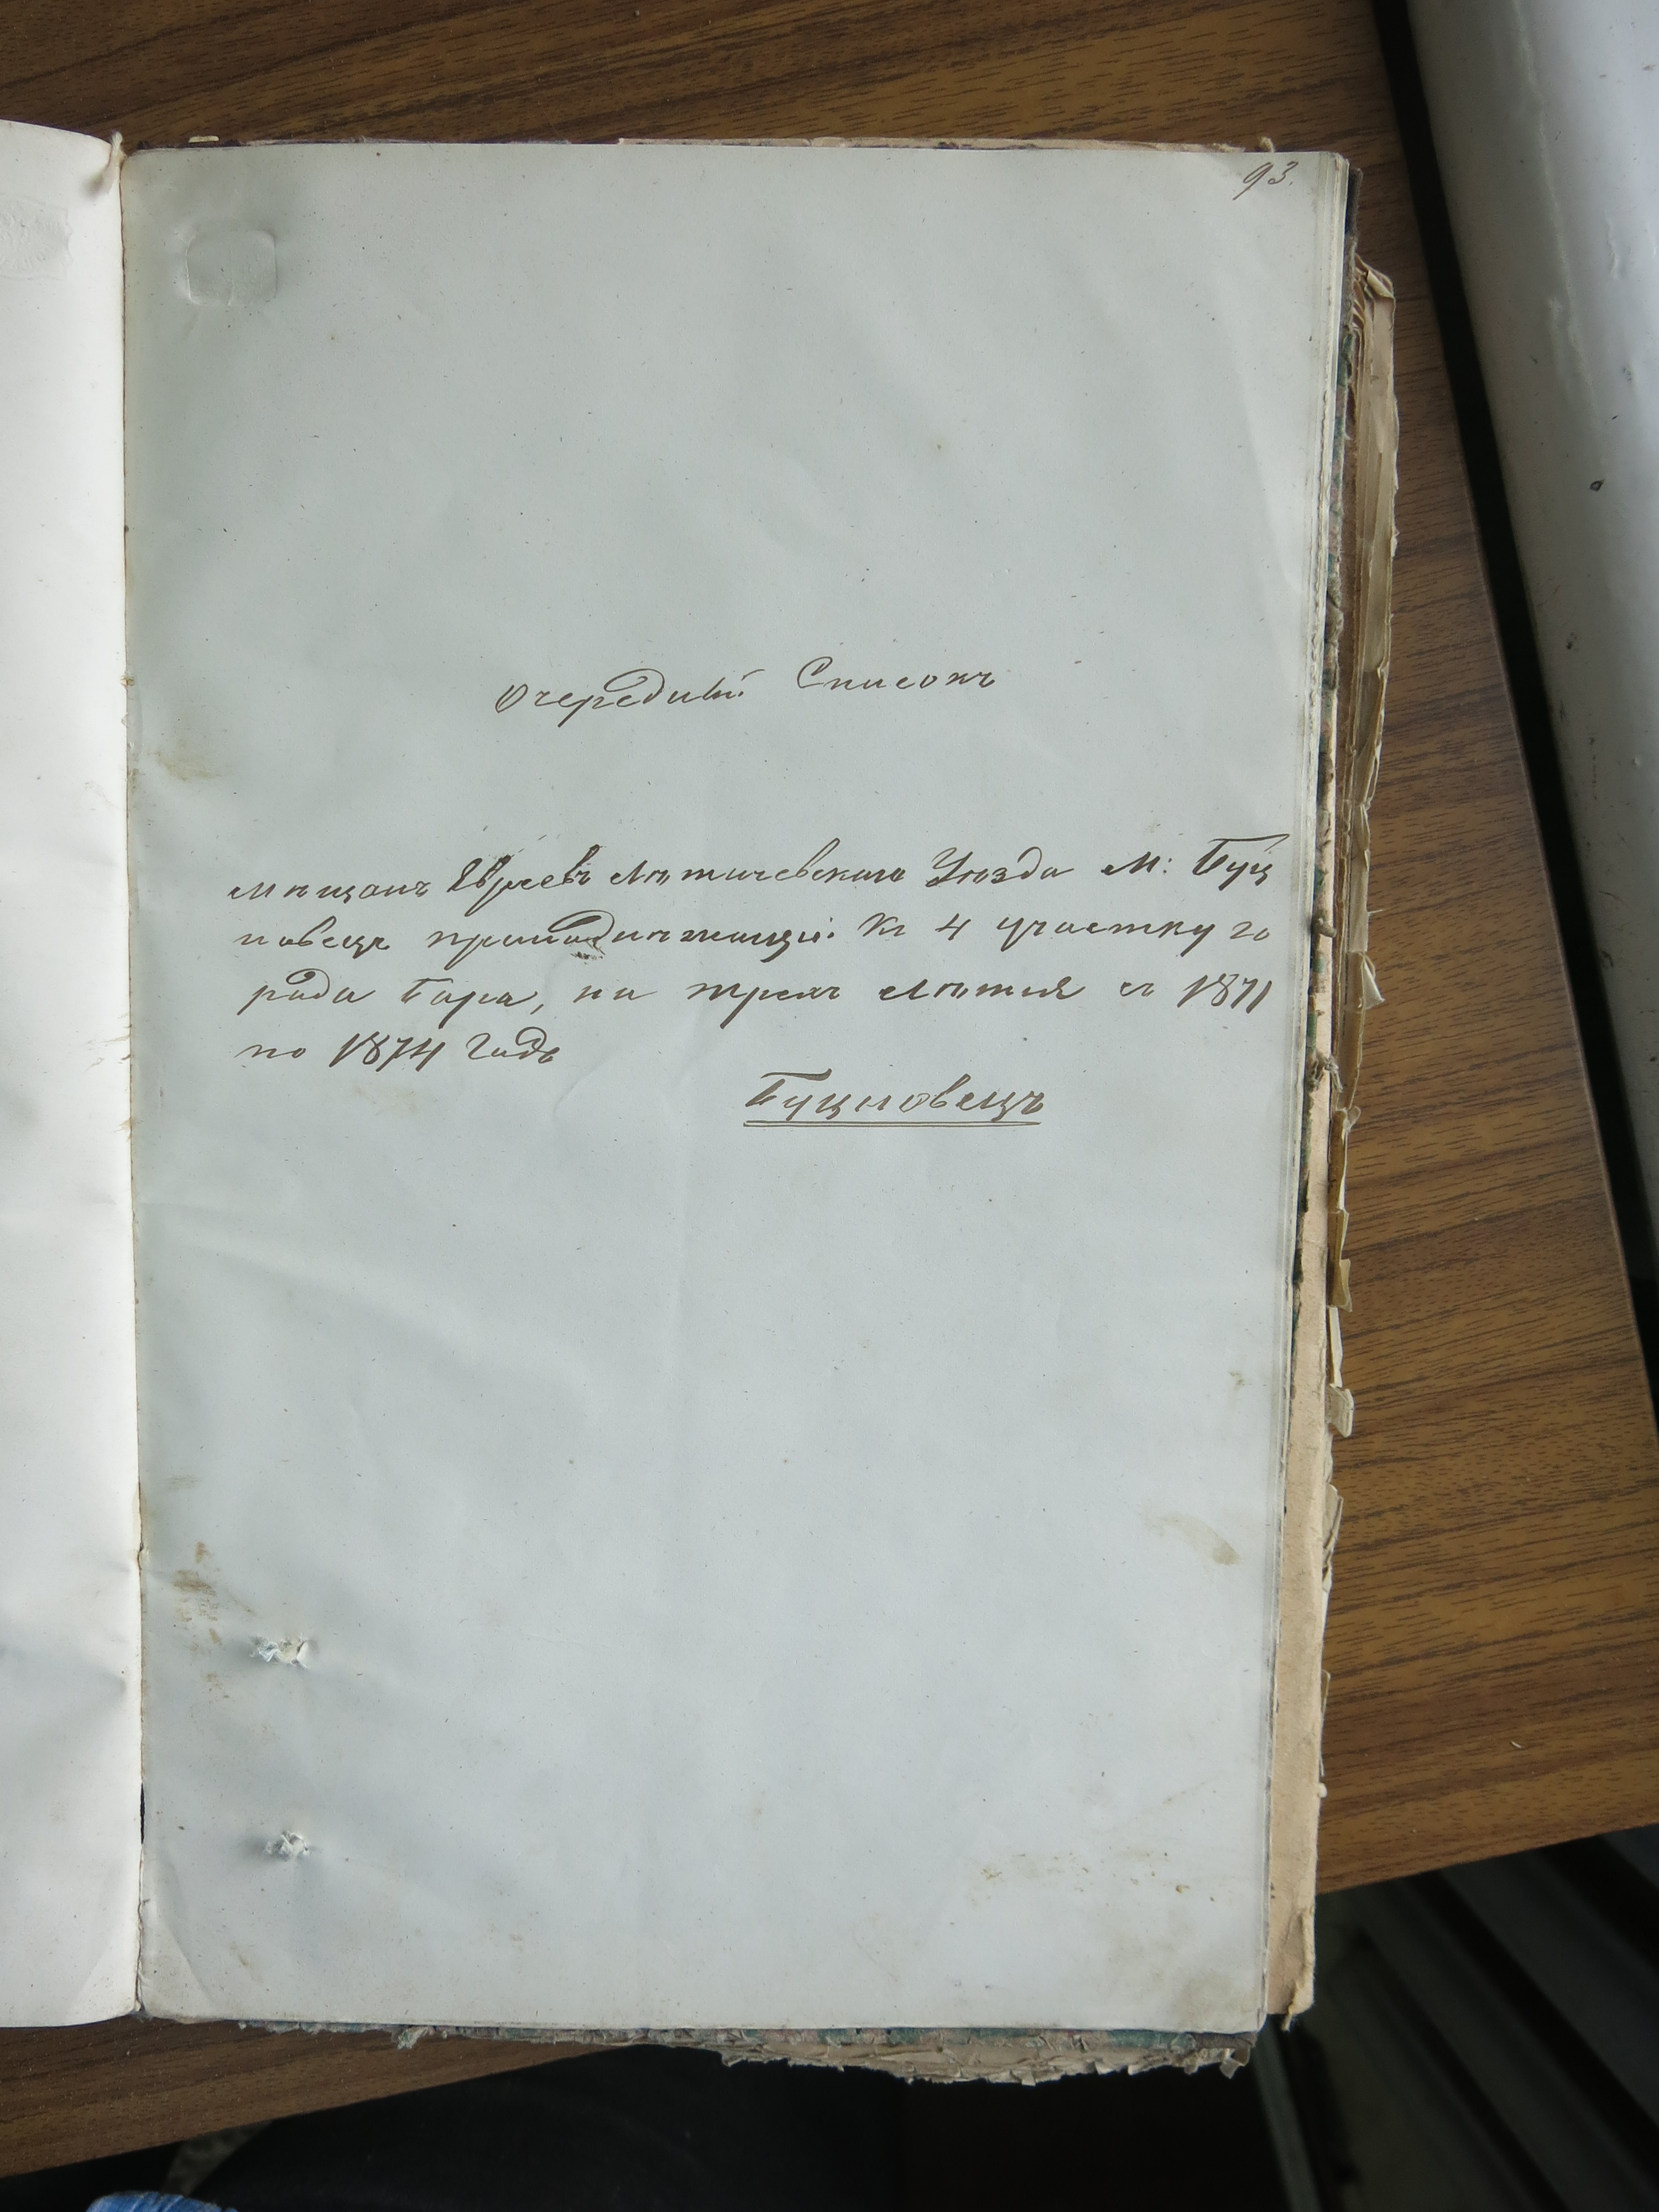 93.
Очередный Списокъ
мѣщанъ Евреевъ Лѣтичевскаго Уѣзда М: Буц
новецъ принадлѣжащій къ 4 участку го
рода Бара, на трехъ лѣтіе съ 1871
по 1874 годъ
Буцновецъ